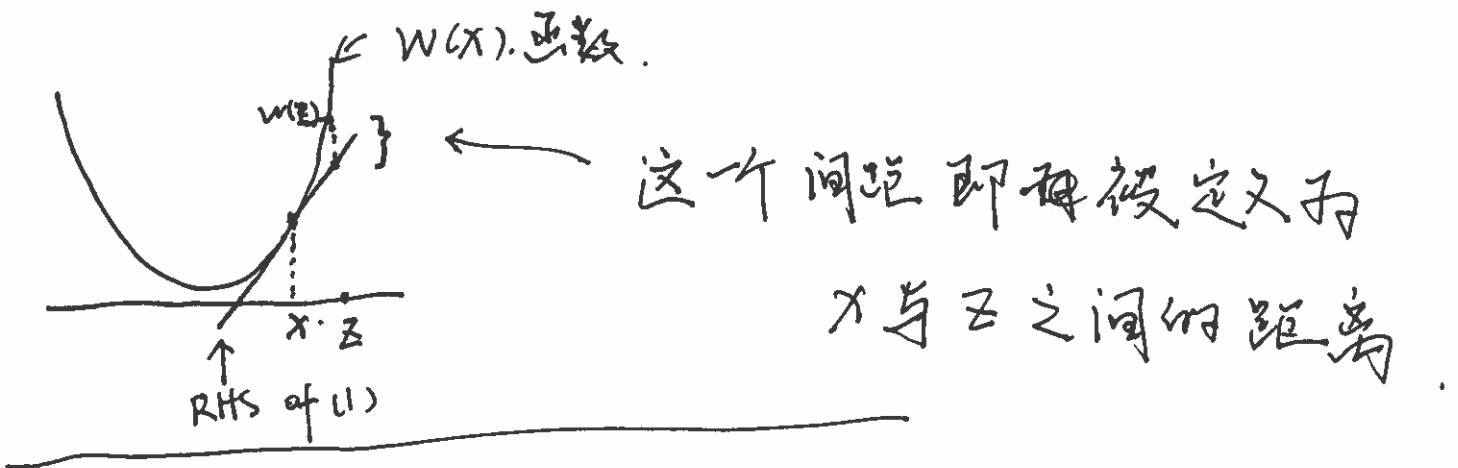 W(X).函数.
W(Z)
}
这一个间距即被定义为
X与Z之间的距离.
X. Z
RHS of (1)